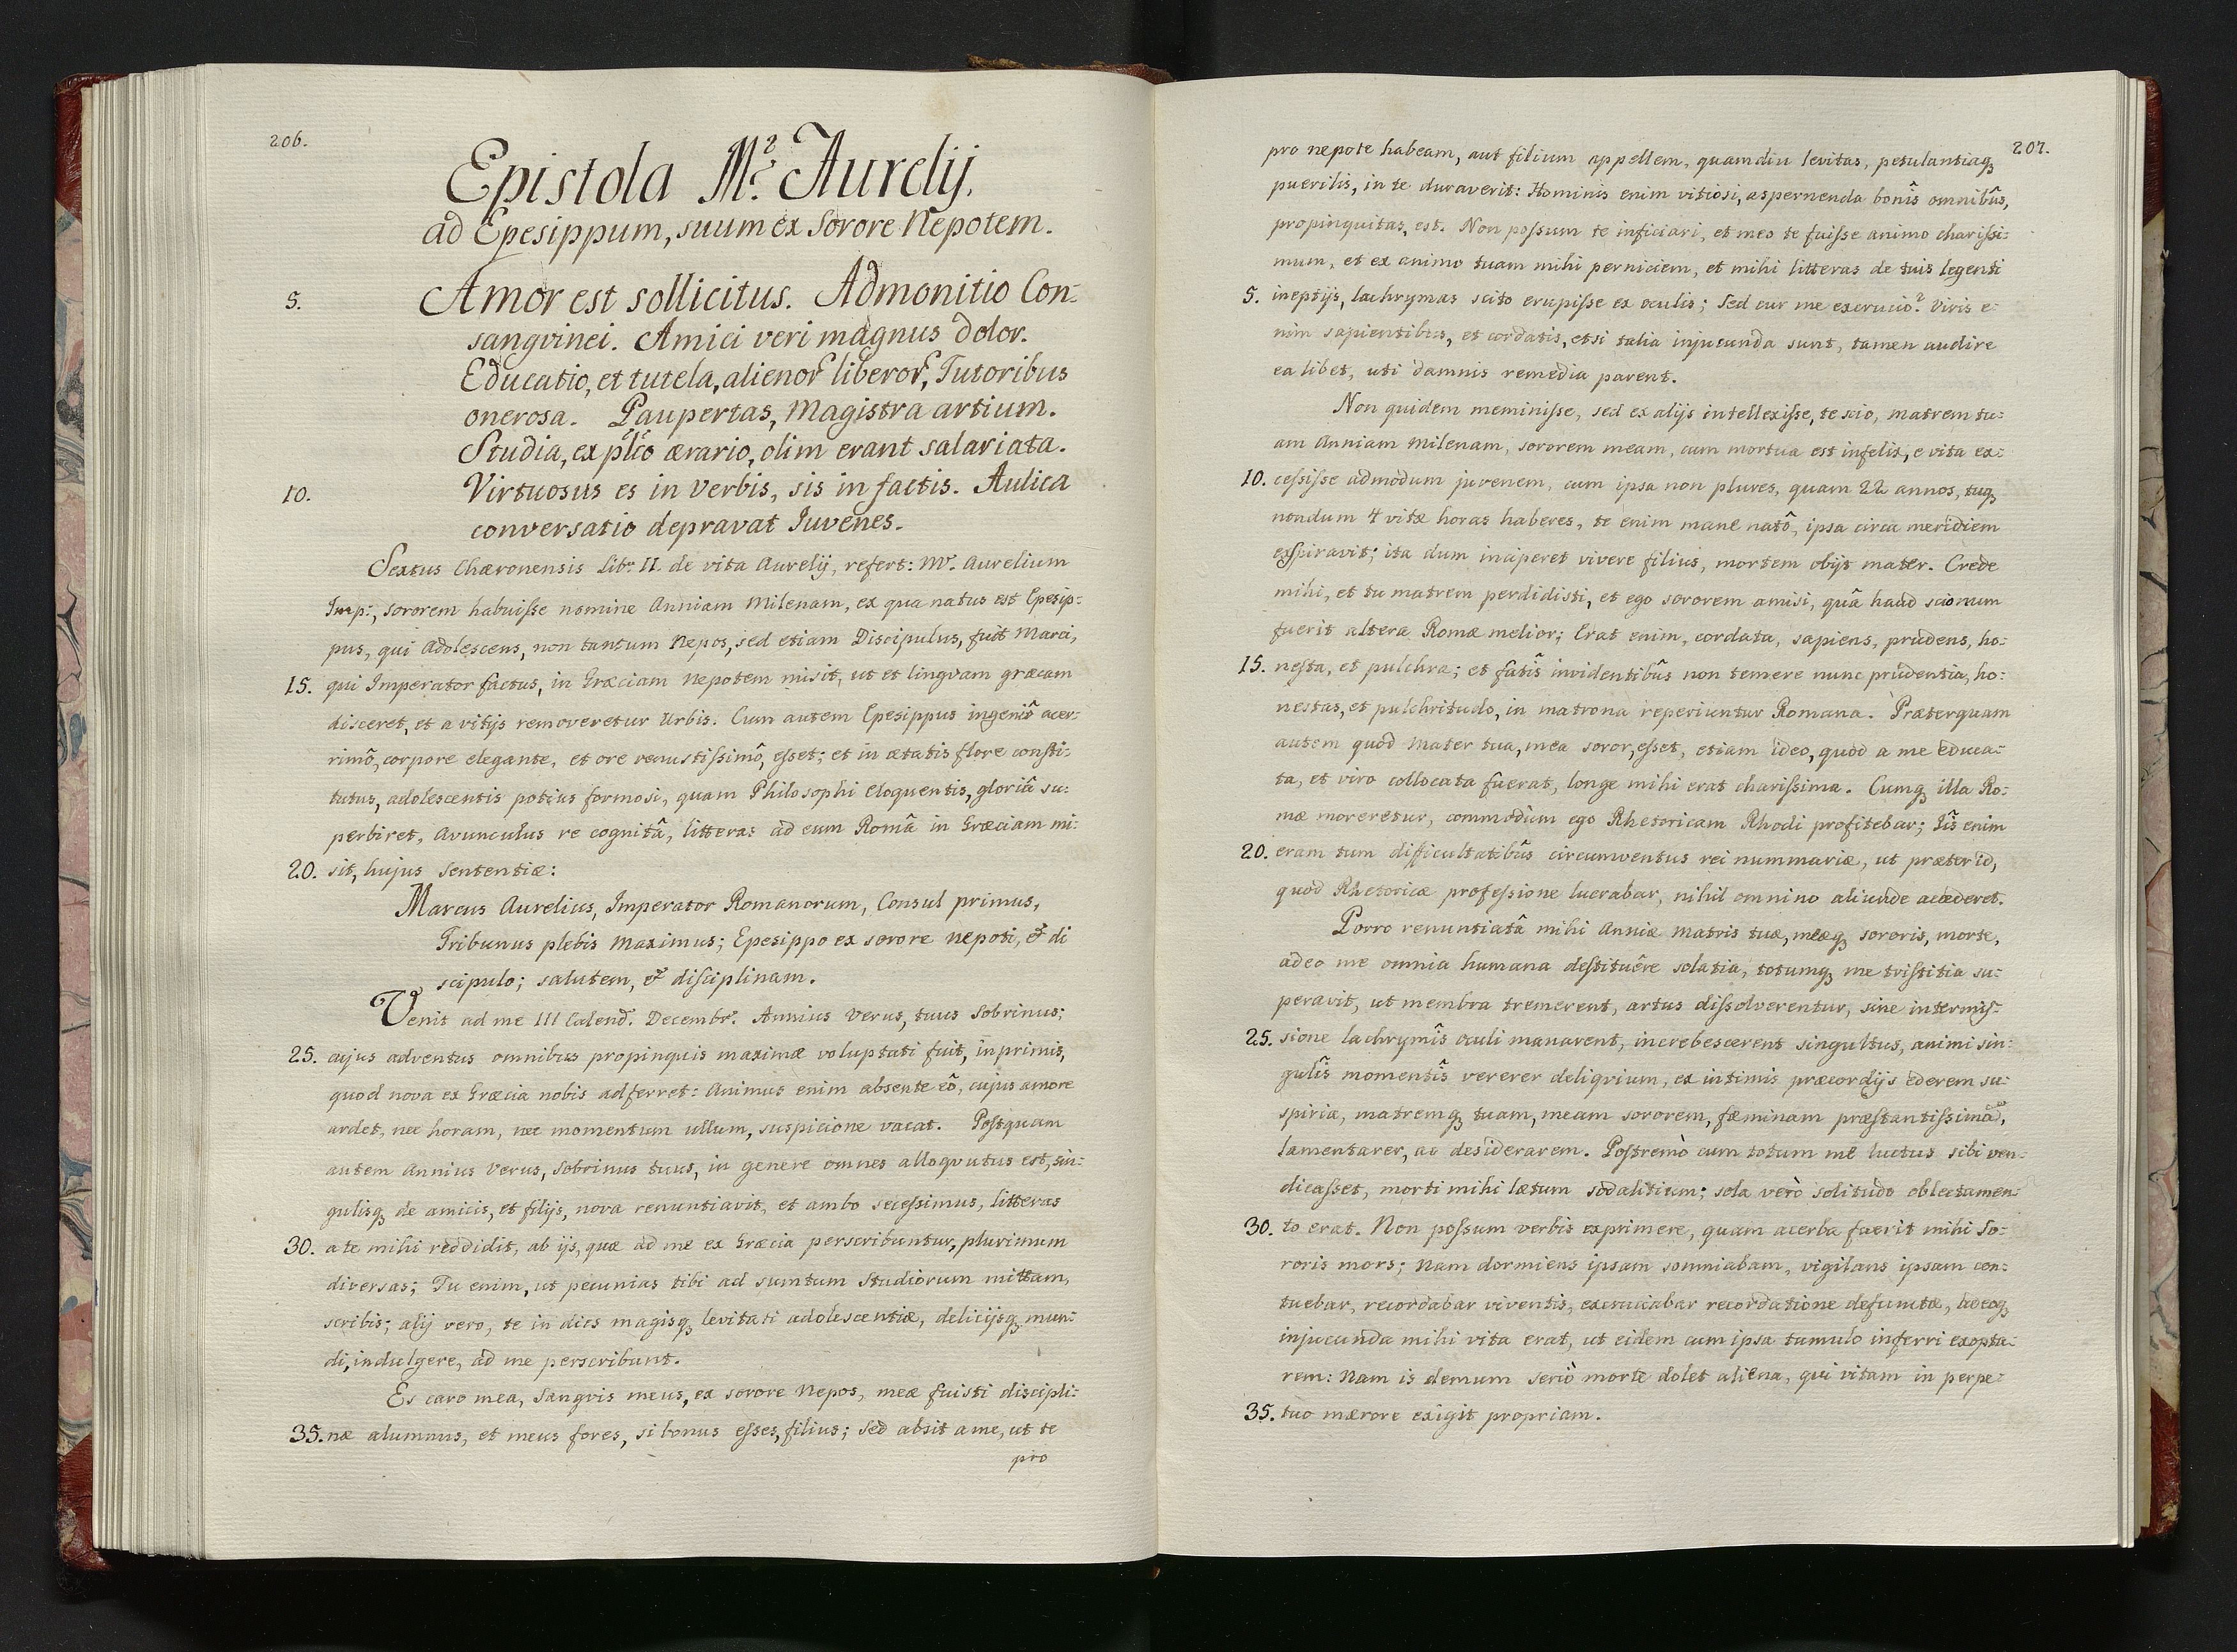 206.
Epistola M.̊ Aurelij,
ad Epesippum, suum ex Sorore Nepotem.
5. Amor est sollicitus. Admonitio Con-
sangvinei. Amici veri magnus dolor.
Educatio, et tutela, alienor liberor, Tutoribus
onerosa. Paupertas, Magistra artium.
Studia, ex plco ærario, olim erant salariata.
10. Virtuosus es in verbis, sis in factis. Aulica
conversatio depravat Iuvenes.
Sextus Chæronensis Libr. II. de vita Aurelij, refert: Mr. Aurelium
Imp:, sororem habuiſse nomine Anniam Milenam, ex qua natus est Epesip-
pus, qui Adolescens, non tantum Nepos, sed etiam Discipulus, fuit Marci,
15. qui Imperator factus, in Græciam Nepotem misit, ut et lingvam græcam
disceret, et a vitijs removeretur Urbis. Cum autem Epesippus ingeniô acer-
rimô, corpore elegante, et ore venustiſsimô, eſset; et in ætatis flore conſti-
tutus, adolescentis potius formosi, quam Philosophi Eloquentis, gloriâ su-
perbiret, Avunculus re cognitâ, litteras ad eum Româ in Græciam mi-
20. sit, hujus Sententiæ:
Marcus Aurelius, Imperator Romanorum, Consul primus,
Tribunus plebis Maximus; Epesippo ex sorore Nepoti, & di
scipulo; salutem, & diſciplinam.
Venit ad me III Calend. Decembr. Annius Verus, tuus Sobrinus;
25. cujus adventus omnibus propinquis maximæ voluptati fuit, inprimis,
quod nova ex Græcia nobis adferret: Animus enim absente eô, cujus amore
ardet, nec horam, nec momentum ullum, suspicione vacat. Poſtquam
autem Annius Verus, Sobrinus tuus, in genere omnes alloqvutus est, sin-
gulisq de amicis, et filijs, nova renuntiavit, et ambo seceſsimus, litteras
30. a te mihi reddidit, ab ijs, quæ ad me ex Græcia perscribuntur, plurimum
diversas; Tu enim, ut pecunias tibi ad sumtum Studiorum mittam,
scribis; alij vero, te in dies magisq levitati adolescentiæ, delicijsq mun-
di, indulgere, ad me perscribunt.
Es caro mea, Sangvis meus, ex sorore Nepos, meæ fuisti discipli-
35. næ alumnus, et meus fores, si bonus eſses, filius; Sed absit a me, ut te
pro
207.
pro nepote habeam, aut filium appellem, quamdiu levitas, petulantiaq
puerilis, in te duraverit: Hominis enim vitiosi, aspernenda bonîs omnibûs,
propinquitas, est. Non poſsum te inficiari, et meo te fuiſse animo chariſsi-
mum, et ex animo tuam mihi perniciem, et mihi litteras de tuis legenti
5. ineptijs, lachrymas scito erupiſse ex oculis; Sed cur me excrucio? Viris e-
nim sapientibus, et cordatis, etsi talia injucunda sunt, tamen audire
ea libet, uti damnis remedia parent.
Non quidem meminiſse, sed ex alijs intellexiſse, te scio, matrem tu-
am Anniam Milenam, sororem meam, cum mortua est infelix, e vita ex-
10. ceſsiſse admodum juvenem, cum ipsa non plures, quam 22 annos, tuq
nondum 4 vitæ horas haberes, te enim mane natô, ipsa circa meridiem
exſpiravit; ita dum inciperet vivere filius, mortem obijt mater. Crede
mihi, et tu matrem perdidisti, et ego sororem amisi, quâ haud scio num
fuerit altera Romæ melior; Erat enim, cordata, sapiens, prudens, ho-
15. neſta, et pulchra; et fatîs invidentibûs non temere nunc prudentia, ho-
nestas, et pulchritudo, in matrona reperiuntur Romana. Præterquam
autem quod Mater tua, mea soror, eſset, etiam ideo, quod a me educa-
ta, et viro collocata fuerat, longe mihi erat chariſsima. Cumq illa Ro-
mæ moreretur, commodùm ego Rhetoricam Rhodi profitebar; Iîs enim
20. eram tum difficultatibûs circumventus rei nummariæ, ut præter id,
quod Rhetoricæ profeſsione lucrabar, nihil omnino aliunde accederet.
Porro renuntiatâ mihi Anniæ Matris tuæ, meæq sororis, morte,
adeo me omnia humana deſtituêre solatia, totumq me triſtitia su-
peravit, ut membra tremerent, artus diſsolverentur, sine intermiſ-
25. sione lachrymîs oculi manarent, increbescerent singultus, animi sin-
gulîs momentîs vererer deliqvium, ex intimis præcordijs ederem su-
spiria, matremq tuam, meam sororem, fæminam præſtantiſsimã,
lamentarer, ac desiderarem. Poſtremò cum totum me luctus sibi ven-
dicaſset, morti mihi lætum sodalitium; sola verò solitudo oblectamen-
30. to erat. Non poſsum verbis exprimere, quam acerba fuerit mihi So-
roris mors; Nam dormiens ipsam somniabam, vigilans ipsam con-
tuebar, recordabar viventis, excruciabar recordatione defunctæ, adeoq
injucunda mihi vita erat, ut eidem cum ipsa tumulo inferri exopta-
rem: Nam is demum seriò morte dolet aliena, qui vitam in perpe-
35. tuo mærore exigit propriam.